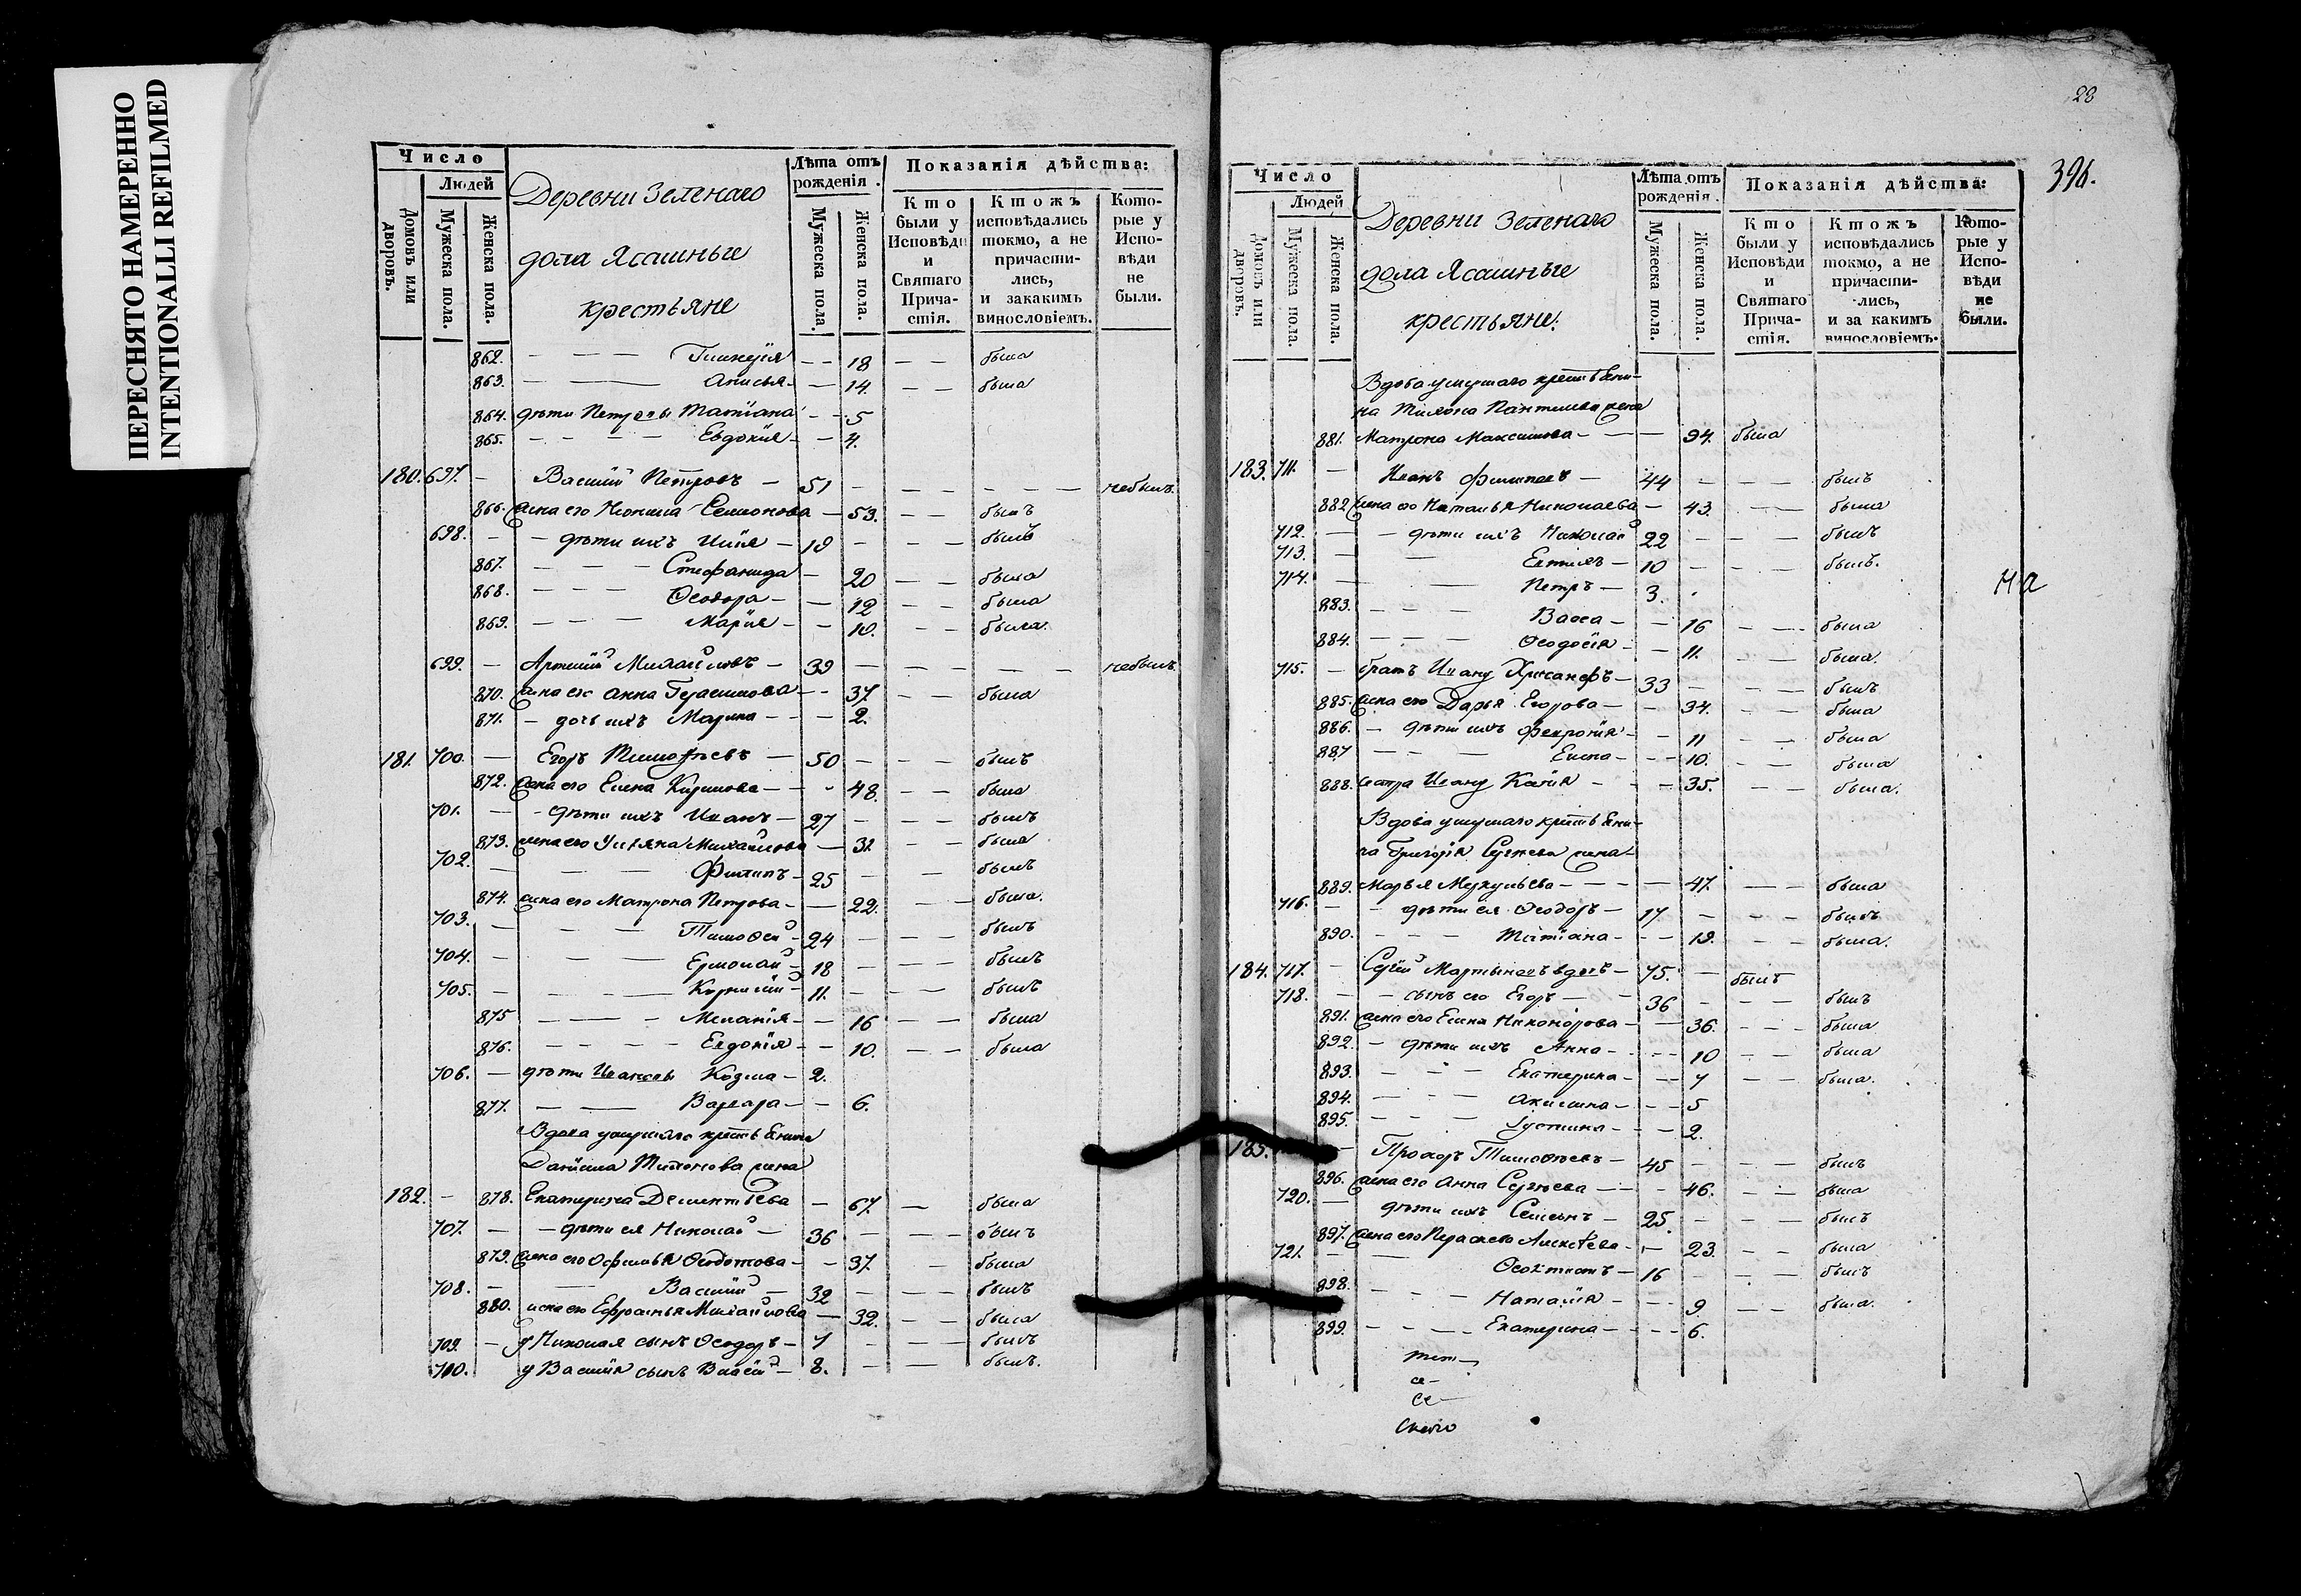 ПЕРЕСНЯТО НАМЕРЕННО
INTENTIONALLI REFILMED
Число
Людей
Домовъ или дворовъ.
Мужеска пола.
Женска пола.
Деревни Зеленаго
дола Ясашные
крестьяне
Лѣта отъ рожденія.
Мужеска пола
Женска пола.
Показанія дѣйства:
Кто были у Исповѣди и Святаго Причастія.
Ктожъ исповѣдались токмо, а не причастились, и закакимъ винословіемъ.
Которые у Исповѣди не были.
862. — — — Гликерія — — 18 — — была
863. — — Анисья — — 14. — — была
864. дѣти Петровы Татіана — — 5
865. — — — — Евдокія — — 4.
180. 697. — Василій Петровъ — 51 — — — — — — небылъ
866. жена его Неонила Семионова — 53. — — былъ
698. — — дѣти ихъ Илія — 19 — — — былъ
867. — — — Стефанида — 20 — — была
868. — — — Ѳеодора — — 12 — — была
869. — — — Марія — — 10. — — была.
699. — Артемій Михайловъ — 39 — — — — — небылъ
870. жена его Анна Герасимова — — 37. — — была
871. — дочь ихъ Марина — — — 2.
181. 700. — Егоръ Тимофѣевъ — 50 — — — былъ
872. жена его Елена Кирилова — — — 48. — — была
701. — — дѣти ихъ Иванъ — 27 — — — былъ
873. жена его Ульяна Михайлова — 31. — — была
702. — — — Филипъ — 25 — — былъ
874. жена его Матрона Петрова — — 22. — — была.
703. — — — Тимоѳей — 24 — — — былъ
704. — — — Ермолай — 18 — — — былъ
705. — — — Корнилій — 11. — — — былъ
875 — — — Меланія — — 16 — — была
876. — — — — Евдокія — — 10. — — была
706. — дѣти Ивановы Козма — 2.
877. — — Варвара — — 6.
Вдова умершаго крест
Даніила Тихонова жена
182. — 878. Екатерина Дементіева — 67. — была
707. — — дѣти ея Николай — 36 — — — былъ
879. жена его Офимья Ѳедотова — — 37. — была
708. — — Василій — 32 — — — былъ
880. жена его Ефросинья Михайлова — 32. — — была
709. — у Николая сынъ Ѳеодоръ — 7 — — — былъ
710. у Василія сынъ Василій — 8. — — былъ.
28
396.
Число
Людей
Домовъ или дворовъ.
Мужеска пола.
Женска пола.
Деревни Зеленаго
дола Ясашные
крестьяне.
Лѣта отъ рожденія.
Мужеска пола.
Женска пола.
Показанія дѣйства:
Кто были у Исповѣди и Святаго Причастія.
Ктожъ исповѣдались токмо, а не причастились, и за какимъ винословіемъ.
Которые у Исповѣди не были.
Вдова умершаго крест
на Тихона жена
881. Матрона Максимова — — — 94. была
183. 711. — Иванъ Филиповъ — 44 — — — былъ
882 жена его Наталья Николаева — 43. — — была
712. — — дѣти ихъ Николай 22 — — — былъ
713. — — 10 — — — былъ.
714. — — Петръ — 3.
883. — — — Васса — — 16 — — была
884. — — — Ѳеодосія — — 11. — — была.
715. — братъ Ивану Хрисанфъ — 33 — — — былъ
885. жена его Дарья Егорова — — 34. — — была
886. — дѣти ихъ Феврония — — 11 — — была
887 — — — Елена — — — 10. — — была
888. сестра Ивану — — — 35. — — была.
Вдова умершаго крест
на Григорія Сергѣева жена
889. Марья Меркульева — — — — 47. — — была
716. — — дѣти ея Ѳеодоръ — 17 — — — былъ
890. — — — Татіана — — — 19. — — была.
184. 717. — Сергій Мартыновъ вдовъ — 75. — былъ
718. — — сынъ его Егоръ — — 36 — — — былъ
891. жена его Елена Никонорова — — 36. — — — была
892. — дѣти ихъ Анна — — — — 10 — — была
893. — — — Екатерина — — — 7 — — была.
894. — — — Акилина — — — 5
895. — — — Іустина — — — 2.
185. — Прохоръ Тимоѳѣевъ — 45 — — — былъ
896. жена его Анна Сергѣева — — — 46. — — была
720. — дѣти ихъ Семенъ — 25. — — — былъ
897. жена его Парасковья Алексѣева — — 23. — — была
721. — — Ѳеоктистъ — 16 — — — былъ
898. — — — Наталія — — — 9 — — была.
899. — — — — Екатерина — — — — 6.
На